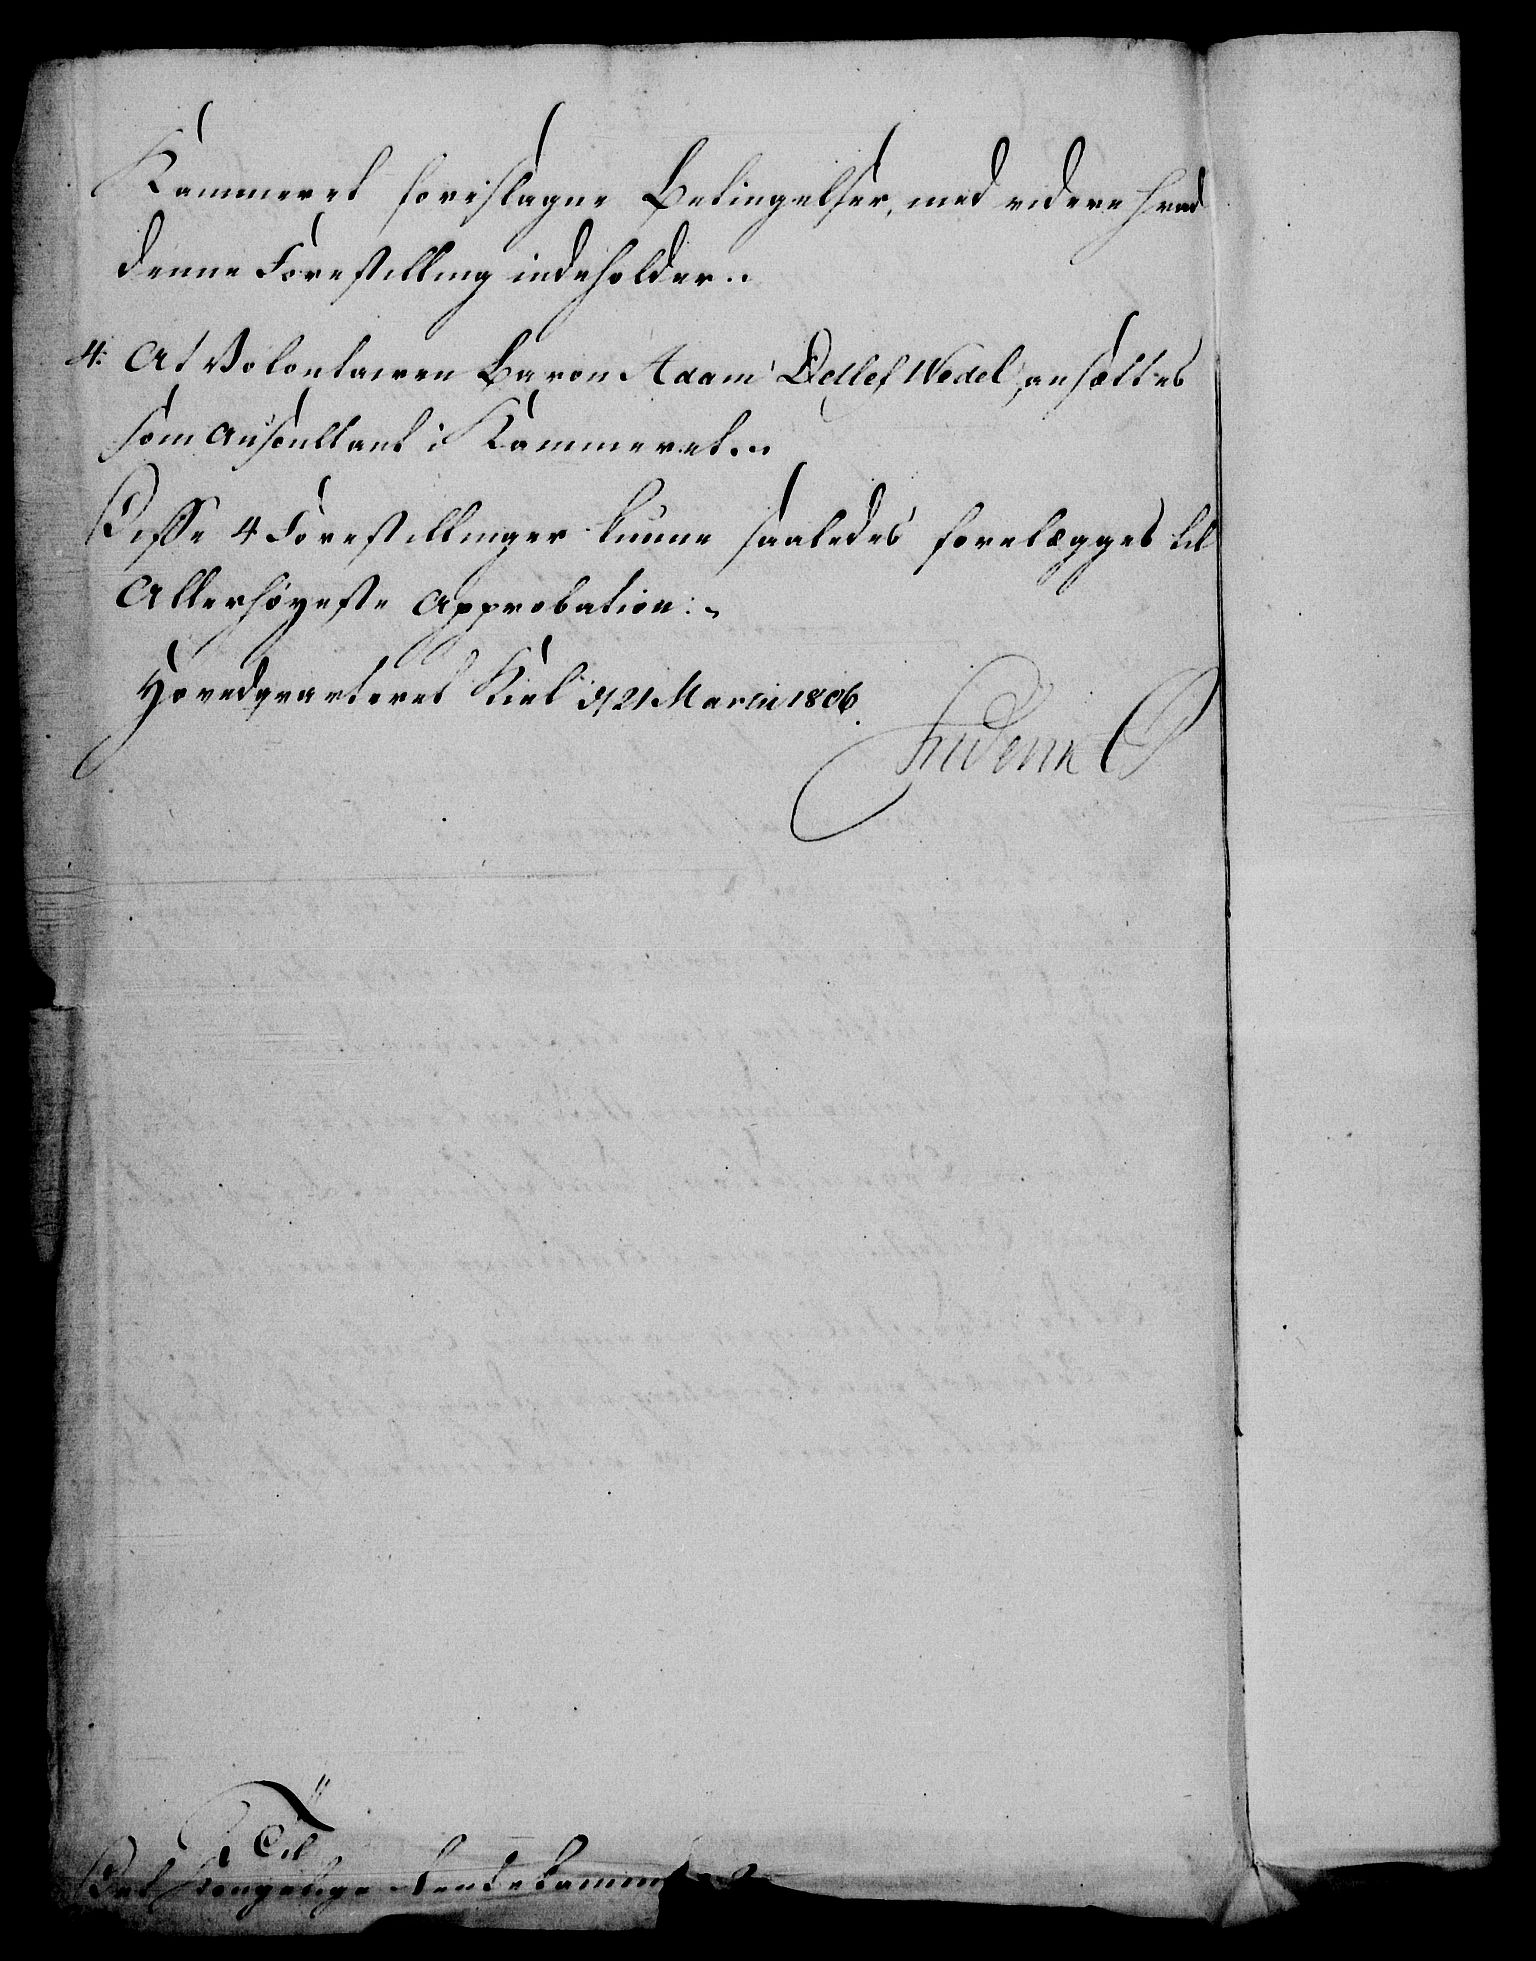 Kammeret foreslagne Betingelser, med videre hvad
denne Forestilling indeholder.
4: At Volontairen Baron Adam Detlef Wedel, ansættes
som Auscultant i Kammeret.
Disse 4 Forestillinger kunne saaledes forelægges til
Allerhøyeste Approbation.
Hovedqvarteret Kiel d 21 Martii 1806.
Friderik
Til
Det Kongelige Rentekamm